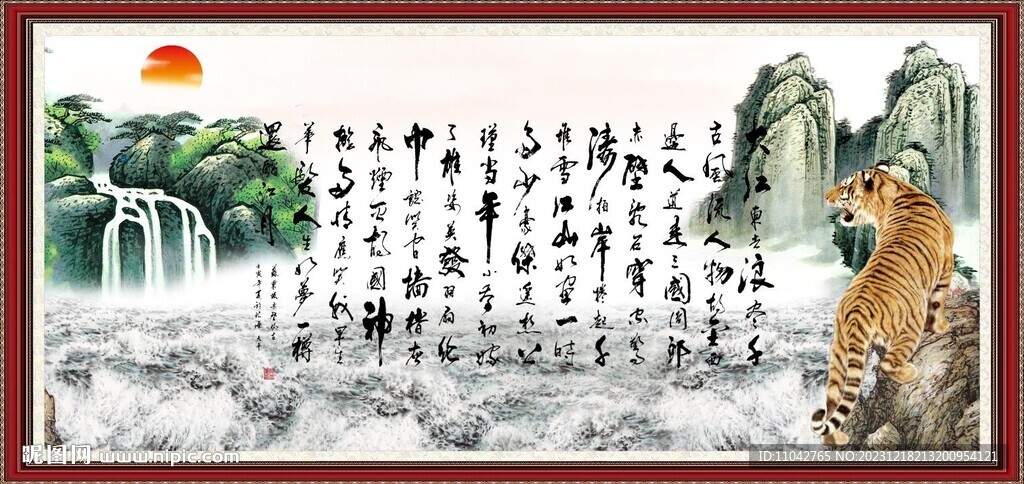 大江東去浪尽千
古風流人物故壘西
邊人道是三國周郎
赤壁亂石穿空驚
濤拍岸捲起千
堆雪江山如畫一時
多少豪傑遙想公
瑾當年小喬初嫁
了雄姿英發羽扇綸
巾談笑間墻櫓灰
飛煙滅故國神
多情應笑我早生
華髮人生如夢一樽
還酹江月
蘇東坡赤壁懷古
壬寅年夏
昵图网 www.nipic.com
ID:11042765 NO:20231218213200954121